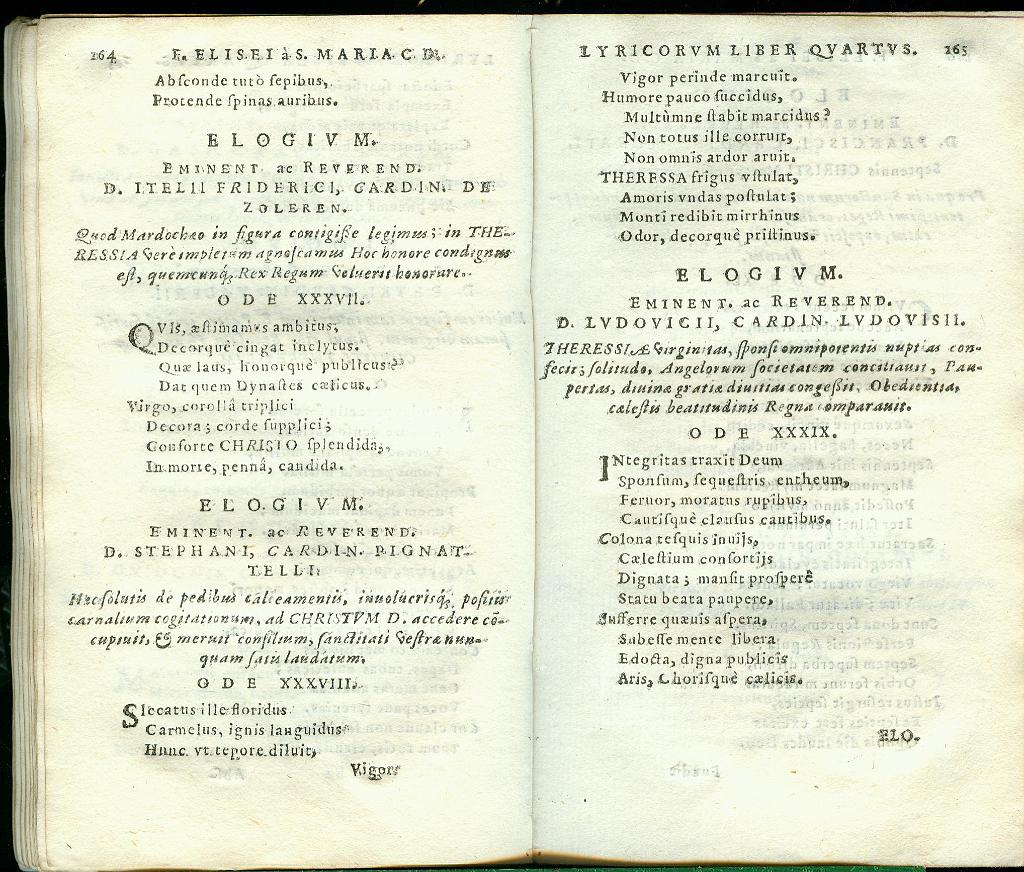 164 F. ELISEI à S. MARIA C. D.
Absconde tutò sepibus,
Protende spinas auribus.
ELOGIVM.
EMINENT. ac REVEREND.
D. ITELII FRIDERICI, CARDIN. DE
ZOLEREN.
Quod Mardochæo in figura contigiße legimus; in THE-
RESSIA verè impletum agnoscamus Hoc honore condignus
est, quemcunq; Rex Regum voluerit honorare.
ODE XXXVII.
QVIS, æstimamus ambitus;
Decorquè cingat inclytus.
Quæ laus, honorquè publicus?
Dat quem Dynastes cælicus.
Virgo, corollâ triplici
Decora; corde supplici;
Consorte CHRISTO splendida;
In morte, pennâ, candida.
ELOGIVM.
EMINENT. ac REVEREND.
D. STEPHANI, CARDIN. PIGNAT-
TELLI.
Hæc solutis de pedibus calceamentis, inuolucrisq; positis
carnalium cogitationum, ad CHRISTVM D. accedere cō-
cupiuit, & meruit consilium, sanctitati vestræ nun-
quam satis laudatum,
ODE XXXVIII.
SIccatus ille floridus
Carmelus, ignis languidus
Hunc vt tepore diluit,
Vigor
LYRICORVM LIBER QVARTVS. 165
Vigor perinde marcuit.
Humore pauco succidus,
Multùmne stabit marcidus?
Non totus ille corruit,
Non omnis ardor aruit.
THERESSA frigus vstulat,
Amoris vndas postulat;
Monti redibit mirrhinus
Odor, decorquè pristinus.
ELOGIVM.
EMINENT. ac REVEREND.
D. LVDOVICII, CARDIN. LVDOVISII.
THERESSIÆ virginitas, sponsi omnipotentis nuptias con-
fecit; solitudo, Angelorum societatem conciliauit, Pau-
pertas, diuinæ gratiæ diuitias congeßit, Obedientia,
cælestis beatitudinis Regna comparauit.
ODE XXXIX.
INtegritas traxit Deum
Sponsum, sequestris entheum,
Feruor, moratus rupibus,
Cautisquè clausus cautibus.
Colona tesquis inuijs,
Cælestium consortijs
Dignata; mansit prosperè
Statu beata paupere,
Sufferre quæuis aspera,
Subesse mente libera
Edocta, digna publicis
Aris, Chorisquè cælicis.
ELO.